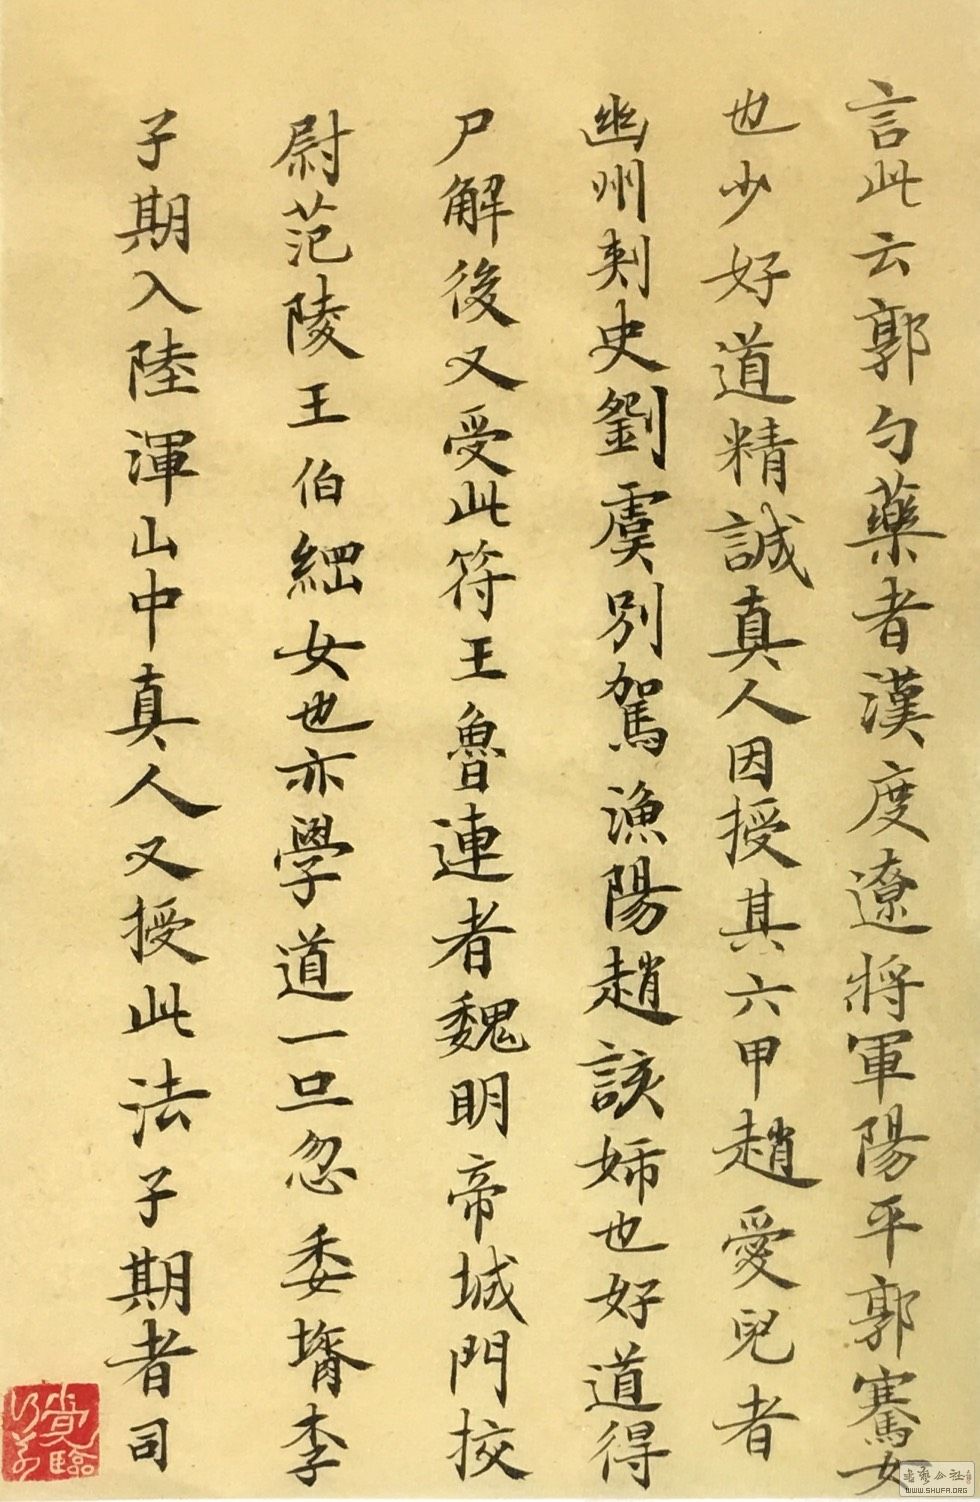 言此云郭勺藥者漢度遼將軍陽平郭騫女
也少好道精誠真人因授其六甲趙愛兒者
幽州刾史劉虞別駕漁陽趙該姊也好道得
尸解後又受此符王魯連者魏明帝城門挍
尉范陵王伯綑女也亦學道一旦忽委壻李
子期入陸渾山中真人又授此法子期者司
臨
书艺公社
WWW.SHUFA.ORG